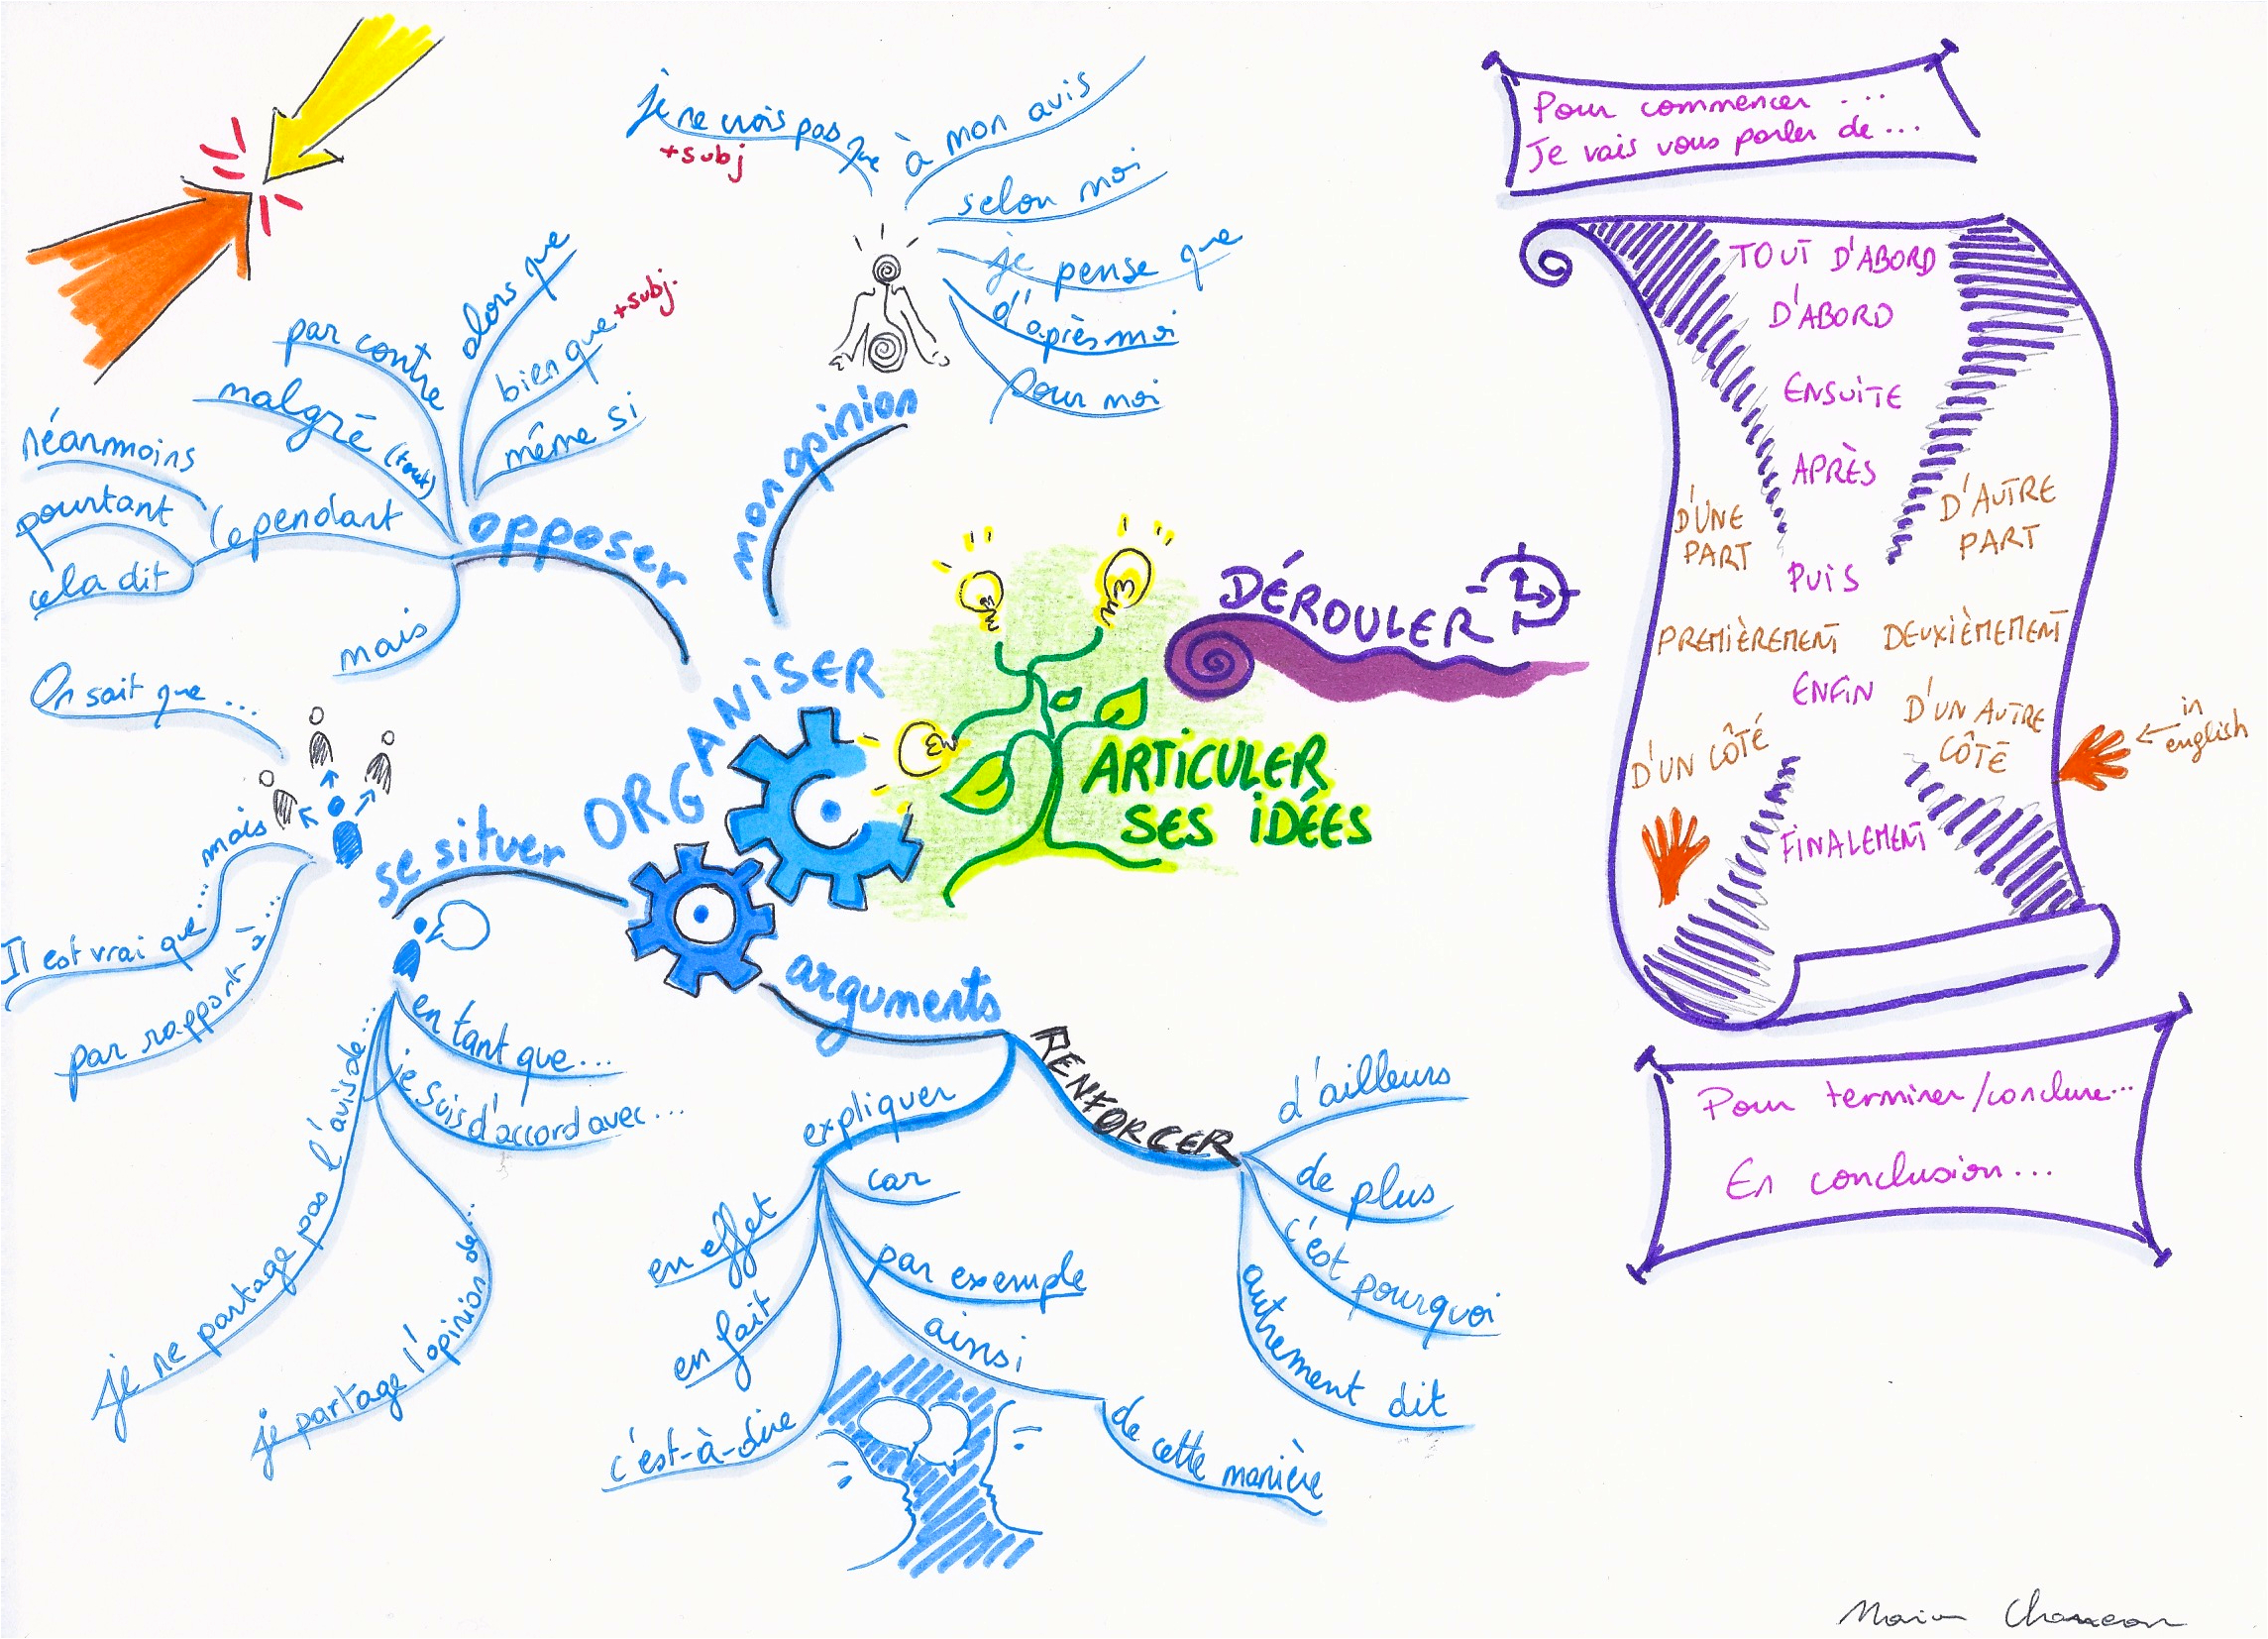 ARTICULER
SES IDÉES
ORGANISER
mon opinion
je ne crois pas que
+subj
à mon avis
selon moi
je pense que
d'après moi
pour moi
opposer
alors que
bien que +subj.
même si
par contre
malgré (tout)
cependant
néanmoins
pourtant
cela dit
mais
se situer
On sait que ...
mais
Il est vrai que ...
par rapport à ...
en tant que...
je suis d'accord avec...
je partage l'opinion de...
je ne partage pas l'avis de...
arguments
expliquer
car
par exemple
ainsi
de cette manière
en effet
en fait
c'est-à-dire
RENFORCER
d'ailleurs
de plus
c'est pourquoi
autrement dit
DÉROULER
Pour commencer ...
Je vais vous parler de...
TOUT D'ABORD
D'ABORD
ENSUITE
APRÈS
D'UNE
PART
D'AUTRE
PART
PUIS
PREMIÈREMENT
DEUXIÈMEMENT
ENFIN
D'UN CÔTÉ
D'UN AUTRE
CÔTÉ
in
english
FINALEMENT
Pour terminer/conclure...
En conclusion...